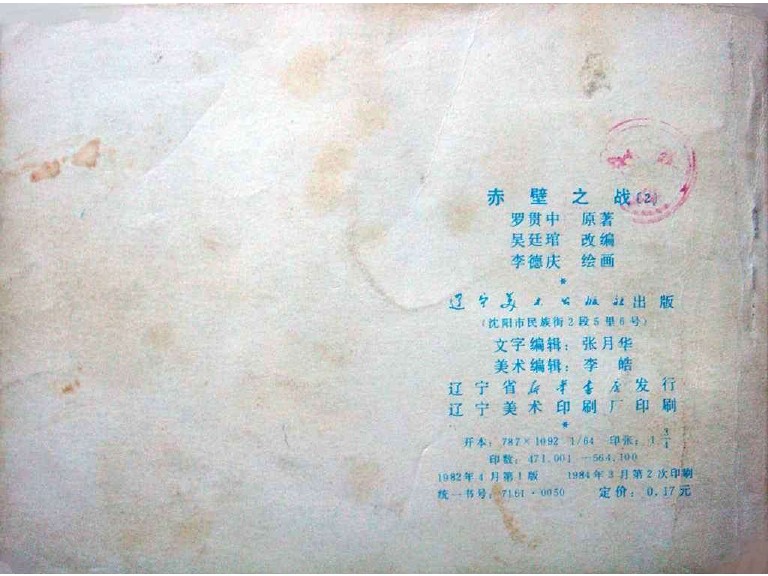 赤壁之战(2)
罗贯中 原著
吴廷琯 改编
李德庆 绘画
*
辽宁美术出版社出版
(沈阳市民族街2段5里6号)
文字编辑：张月华
美术编辑：李 皓
辽宁省新华书店发行
辽宁美术印刷厂印刷
*
开本：787×1092 1/64 印张：1 3/4
印数：471,001—564,100
1982年4月第1版 1984年3月第2次印刷
统一书号：7161·0050 定价：0.17元